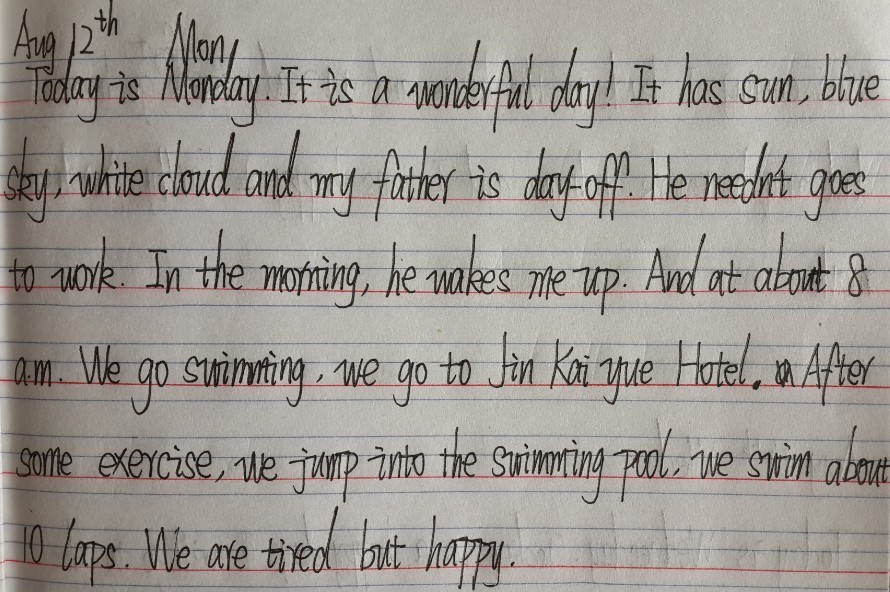 Aug 12th Mon
Today is Monday. It is a wonderful day! It has sun, blue
sky, white cloud and my father is day-off. He needn't goes
to work. In the morning, he wakes me up. And at about 8
a.m. We go swimming, we go to Jin Kai yue Hotel. After
some exercise, we jump into the swimming pool, we swim about
10 laps. We are tired but happy.